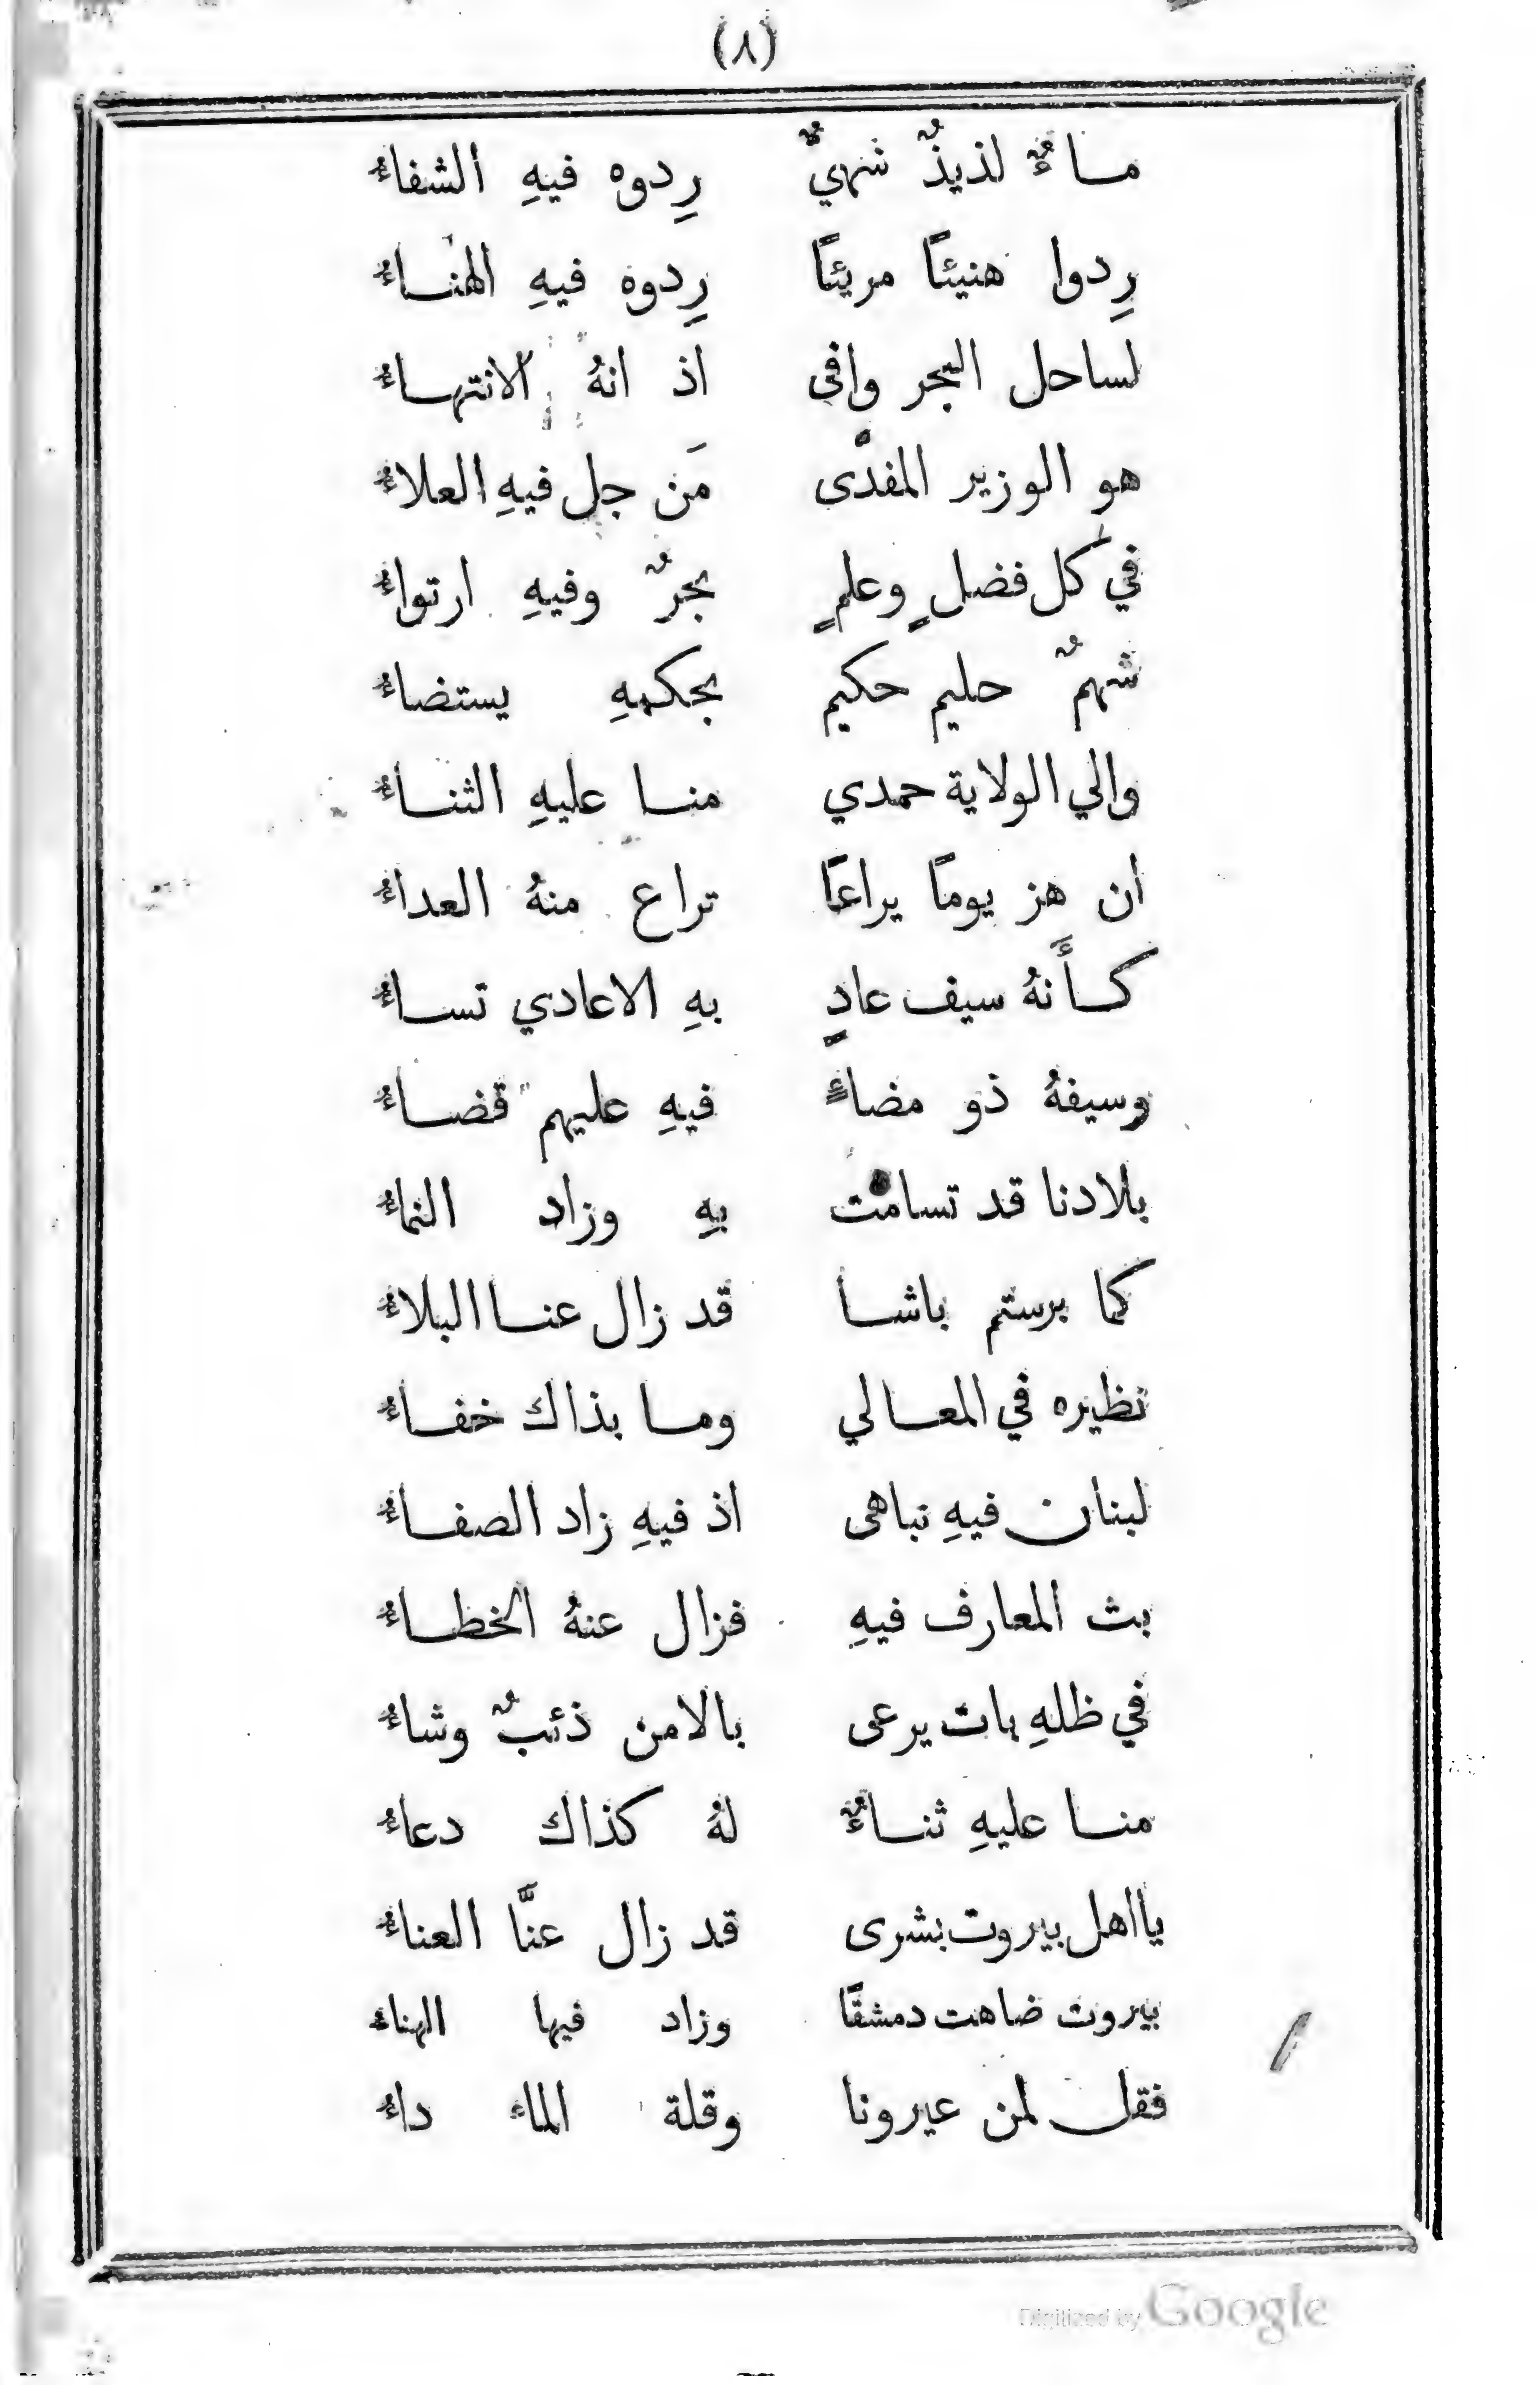 (٨)
ماءٌ لذيذٌ شهيٌّ رِدوه فيهِ الشفاءُ
رِدوا هنيئًا مريئًا رِدوه فيهِ الهناءُ
لساحل البحر وافى اذ انهُ الانتهاءُ
هو الوزير المفدّى مَن جل فيهِ العلاءُ
في كل فضلٍ وعلمٍ بحرٌ وفيهِ ارتواءُ
شهمٌ حليم حكيم بحكمهِ يستضاءُ
والي الولاية حمدي منا عليهِ الثناءُ
ان هز يومًا يراعًا تراع منهُ العداءُ
كأَنهُ سيف عادٍ بهِ الاعادي تساءُ
وسيفهُ ذو مضاءً فيهِ عليهم قضاءُ
بلادنا قد تسامت بهِ وزاد النماءُ
كما برستم باشا قد زال عنا البلاءُ
نظيره في المعالي وما بذاك خفاءُ
لبنان فيهِ تباهى اذ فيهِ زاد الصفاءُ
بث المعارف فيهِ فزال عنهُ الخطاءُ
في ظلهِ بات يرعى بالامن ذئبٌ وشاءُ
منا عليهِ ثناءٌ لهُ كذاك دعاءُ
يا اهل بيروت بشرى قد زال عنَّا العناءُ
بيروت ضاهت دمشقًا وزاد فيها الهناء
فقل لمن عيرونا وقلة الماء داءُ
Digitized by Google